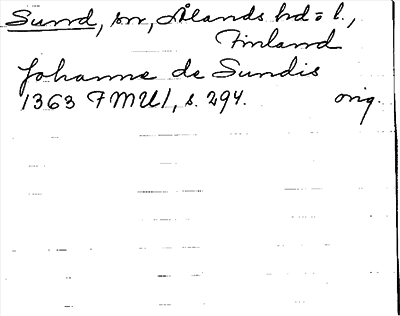 Sund, sn, Ålands hd o. l.,
Finland
Johanne de Sundis
1363 FMU 1, s. 294. orig.